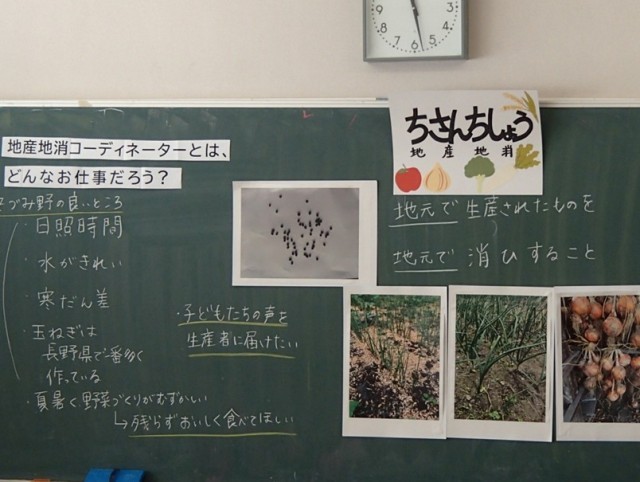 地産地消コーディネーターとは、
どんなお仕事だろう？
づみ野の良いところ
・日照時間
・水がきれい
・寒だん差
・玉ねぎは
長野県で一番多く
作っている
・夏暑く野菜づくりがむずかしい
↳残らずおいしく食べてほしい
・子どもたちの声を
生産者に届けたい
ちさんちしょう
地産地消
地元で生産されたものを
地元で消ひすること
6 5